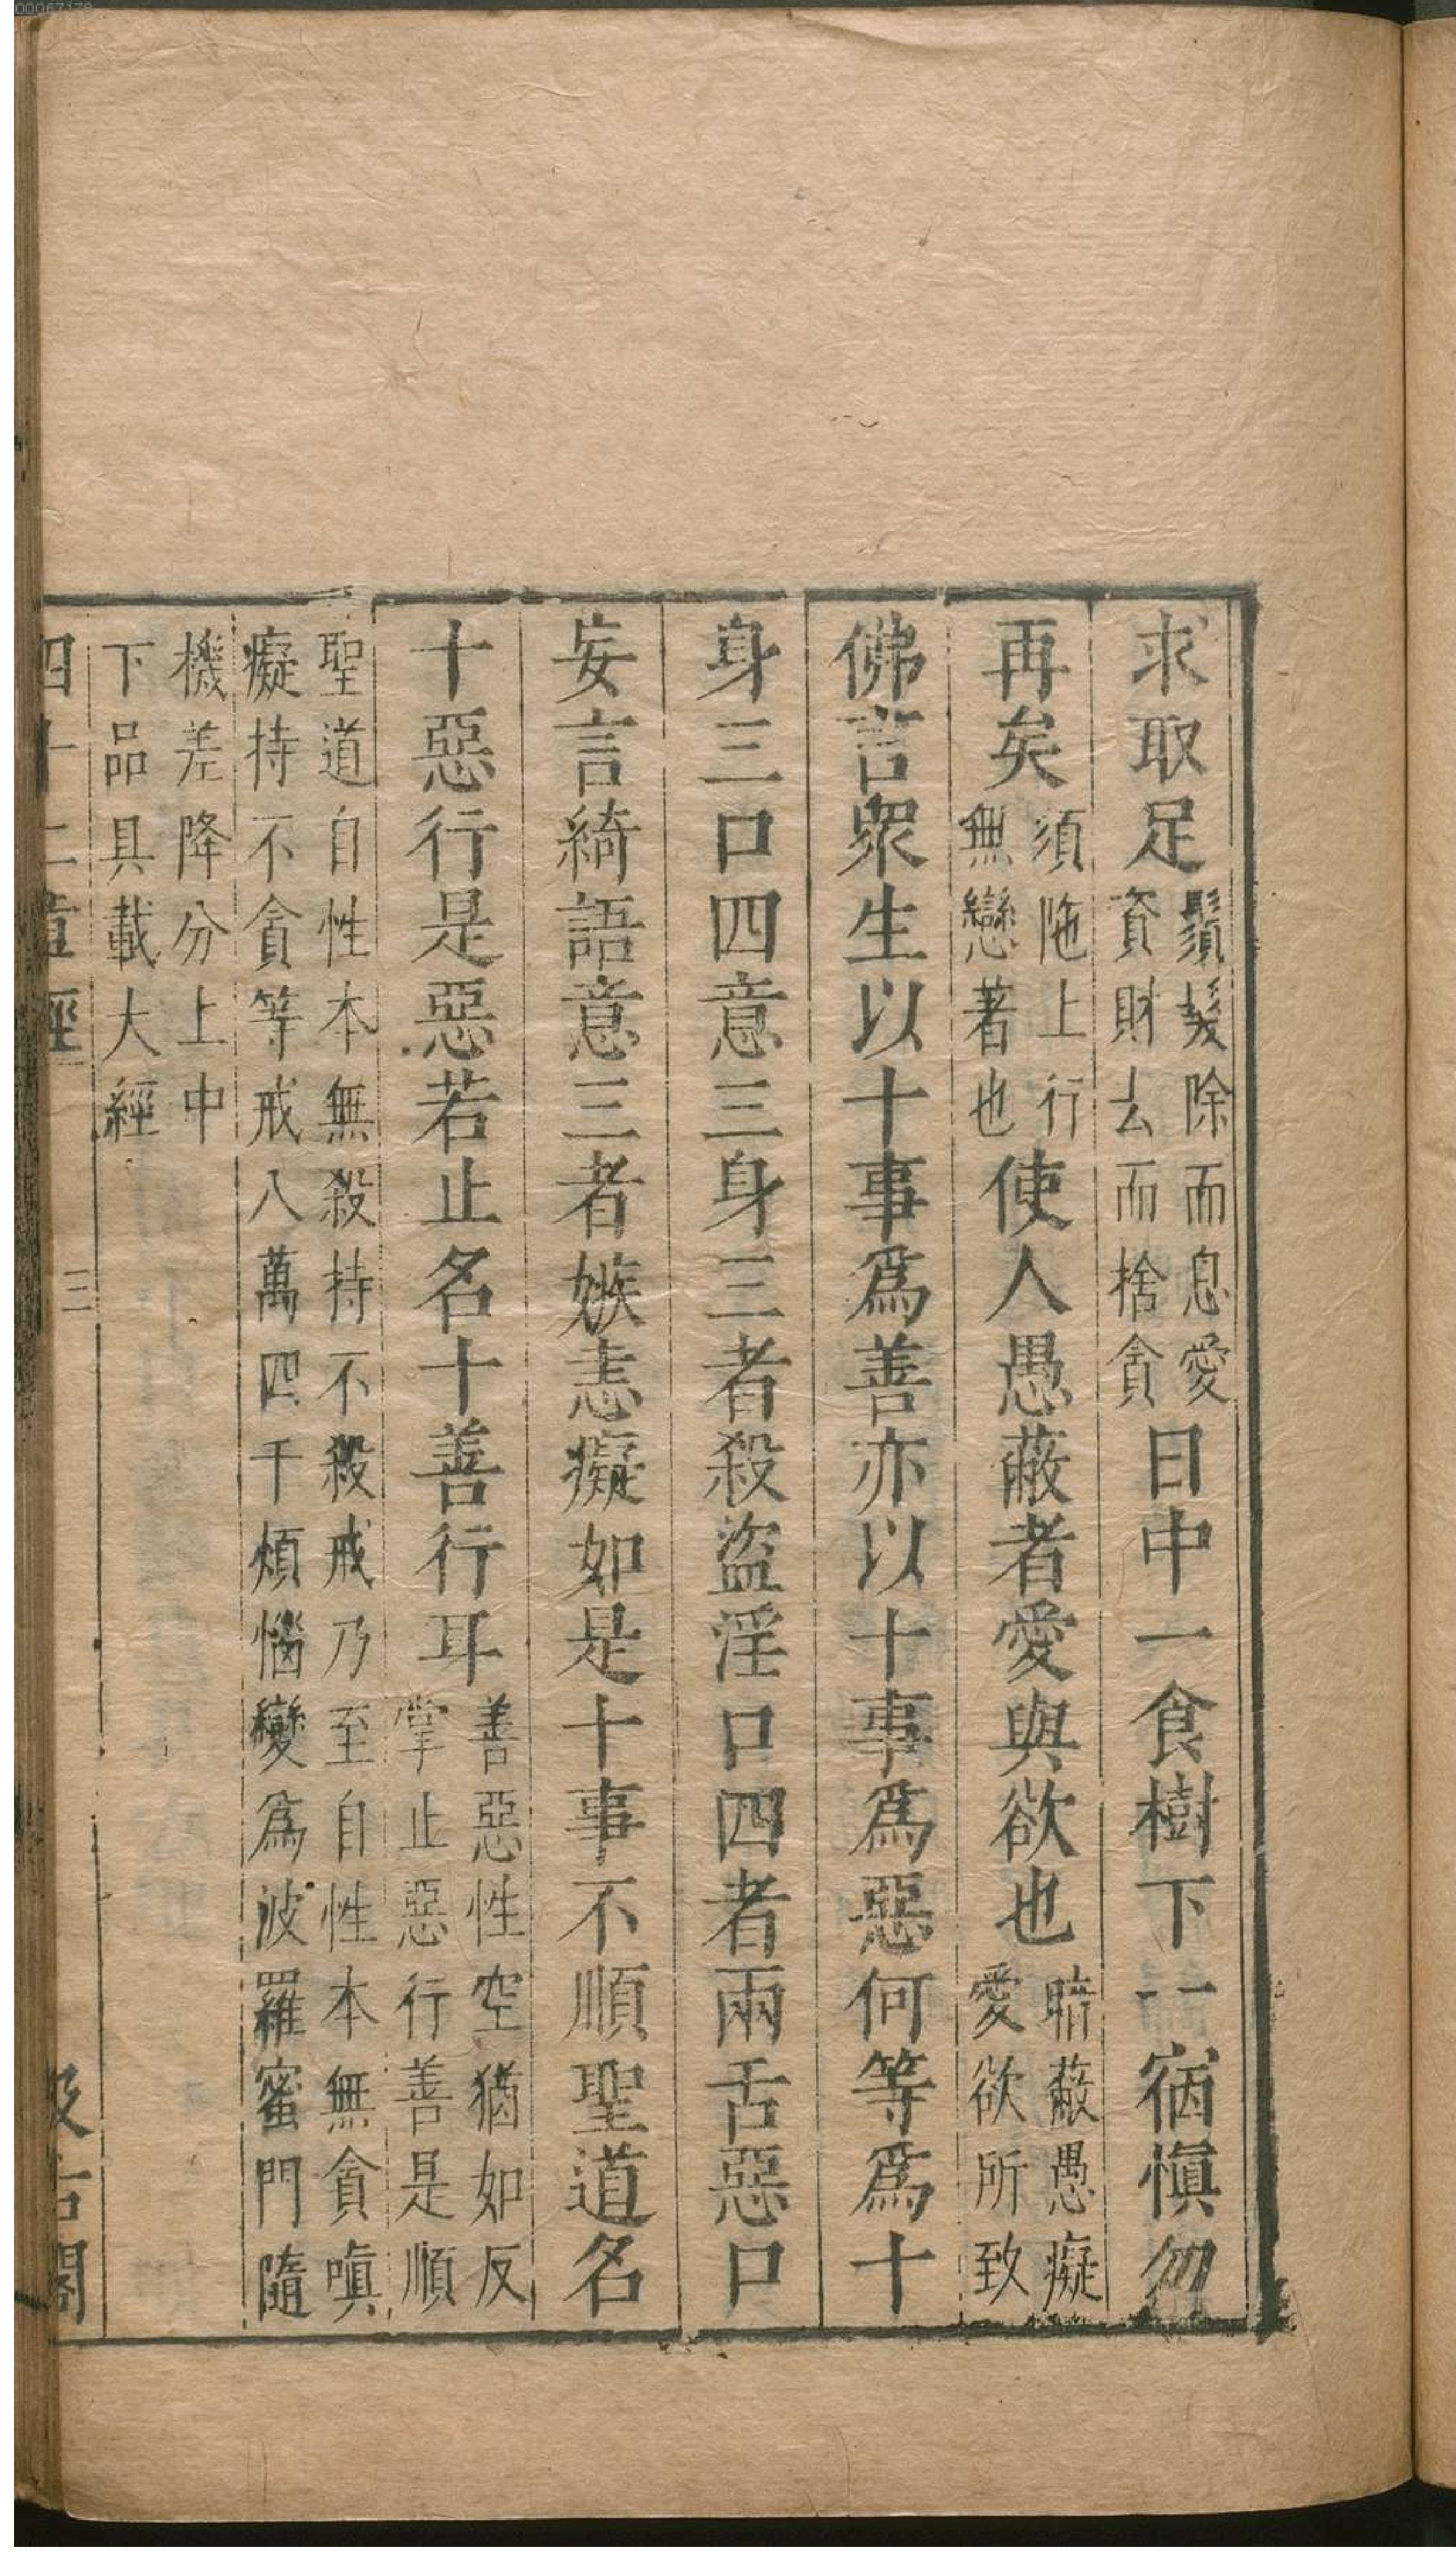 求取足鬚髮除而息愛資財去而捨貪日中一食樹下一宿愼勿
再矣須陁上行無戀著也使人愚蔽者愛與欲也暗蔽愚癡愛欲所致
佛言衆生以十事爲善亦以十事爲惡何等爲十
身三口四意三身三者殺盜淫口四者兩舌惡口
妄言綺語意三者嫉恚癡如是十事不順聖道名
十惡行是惡若止名十善行耳善惡性空猶如反掌止惡行善是順
聖道自性本無殺持不殺戒乃至自性本無貪嗔
癡持不貪等戒八萬四千煩惱變爲波羅蜜門隨
機差降分上中
下品具載大經
四十二章經 三 汲古閣
00067178